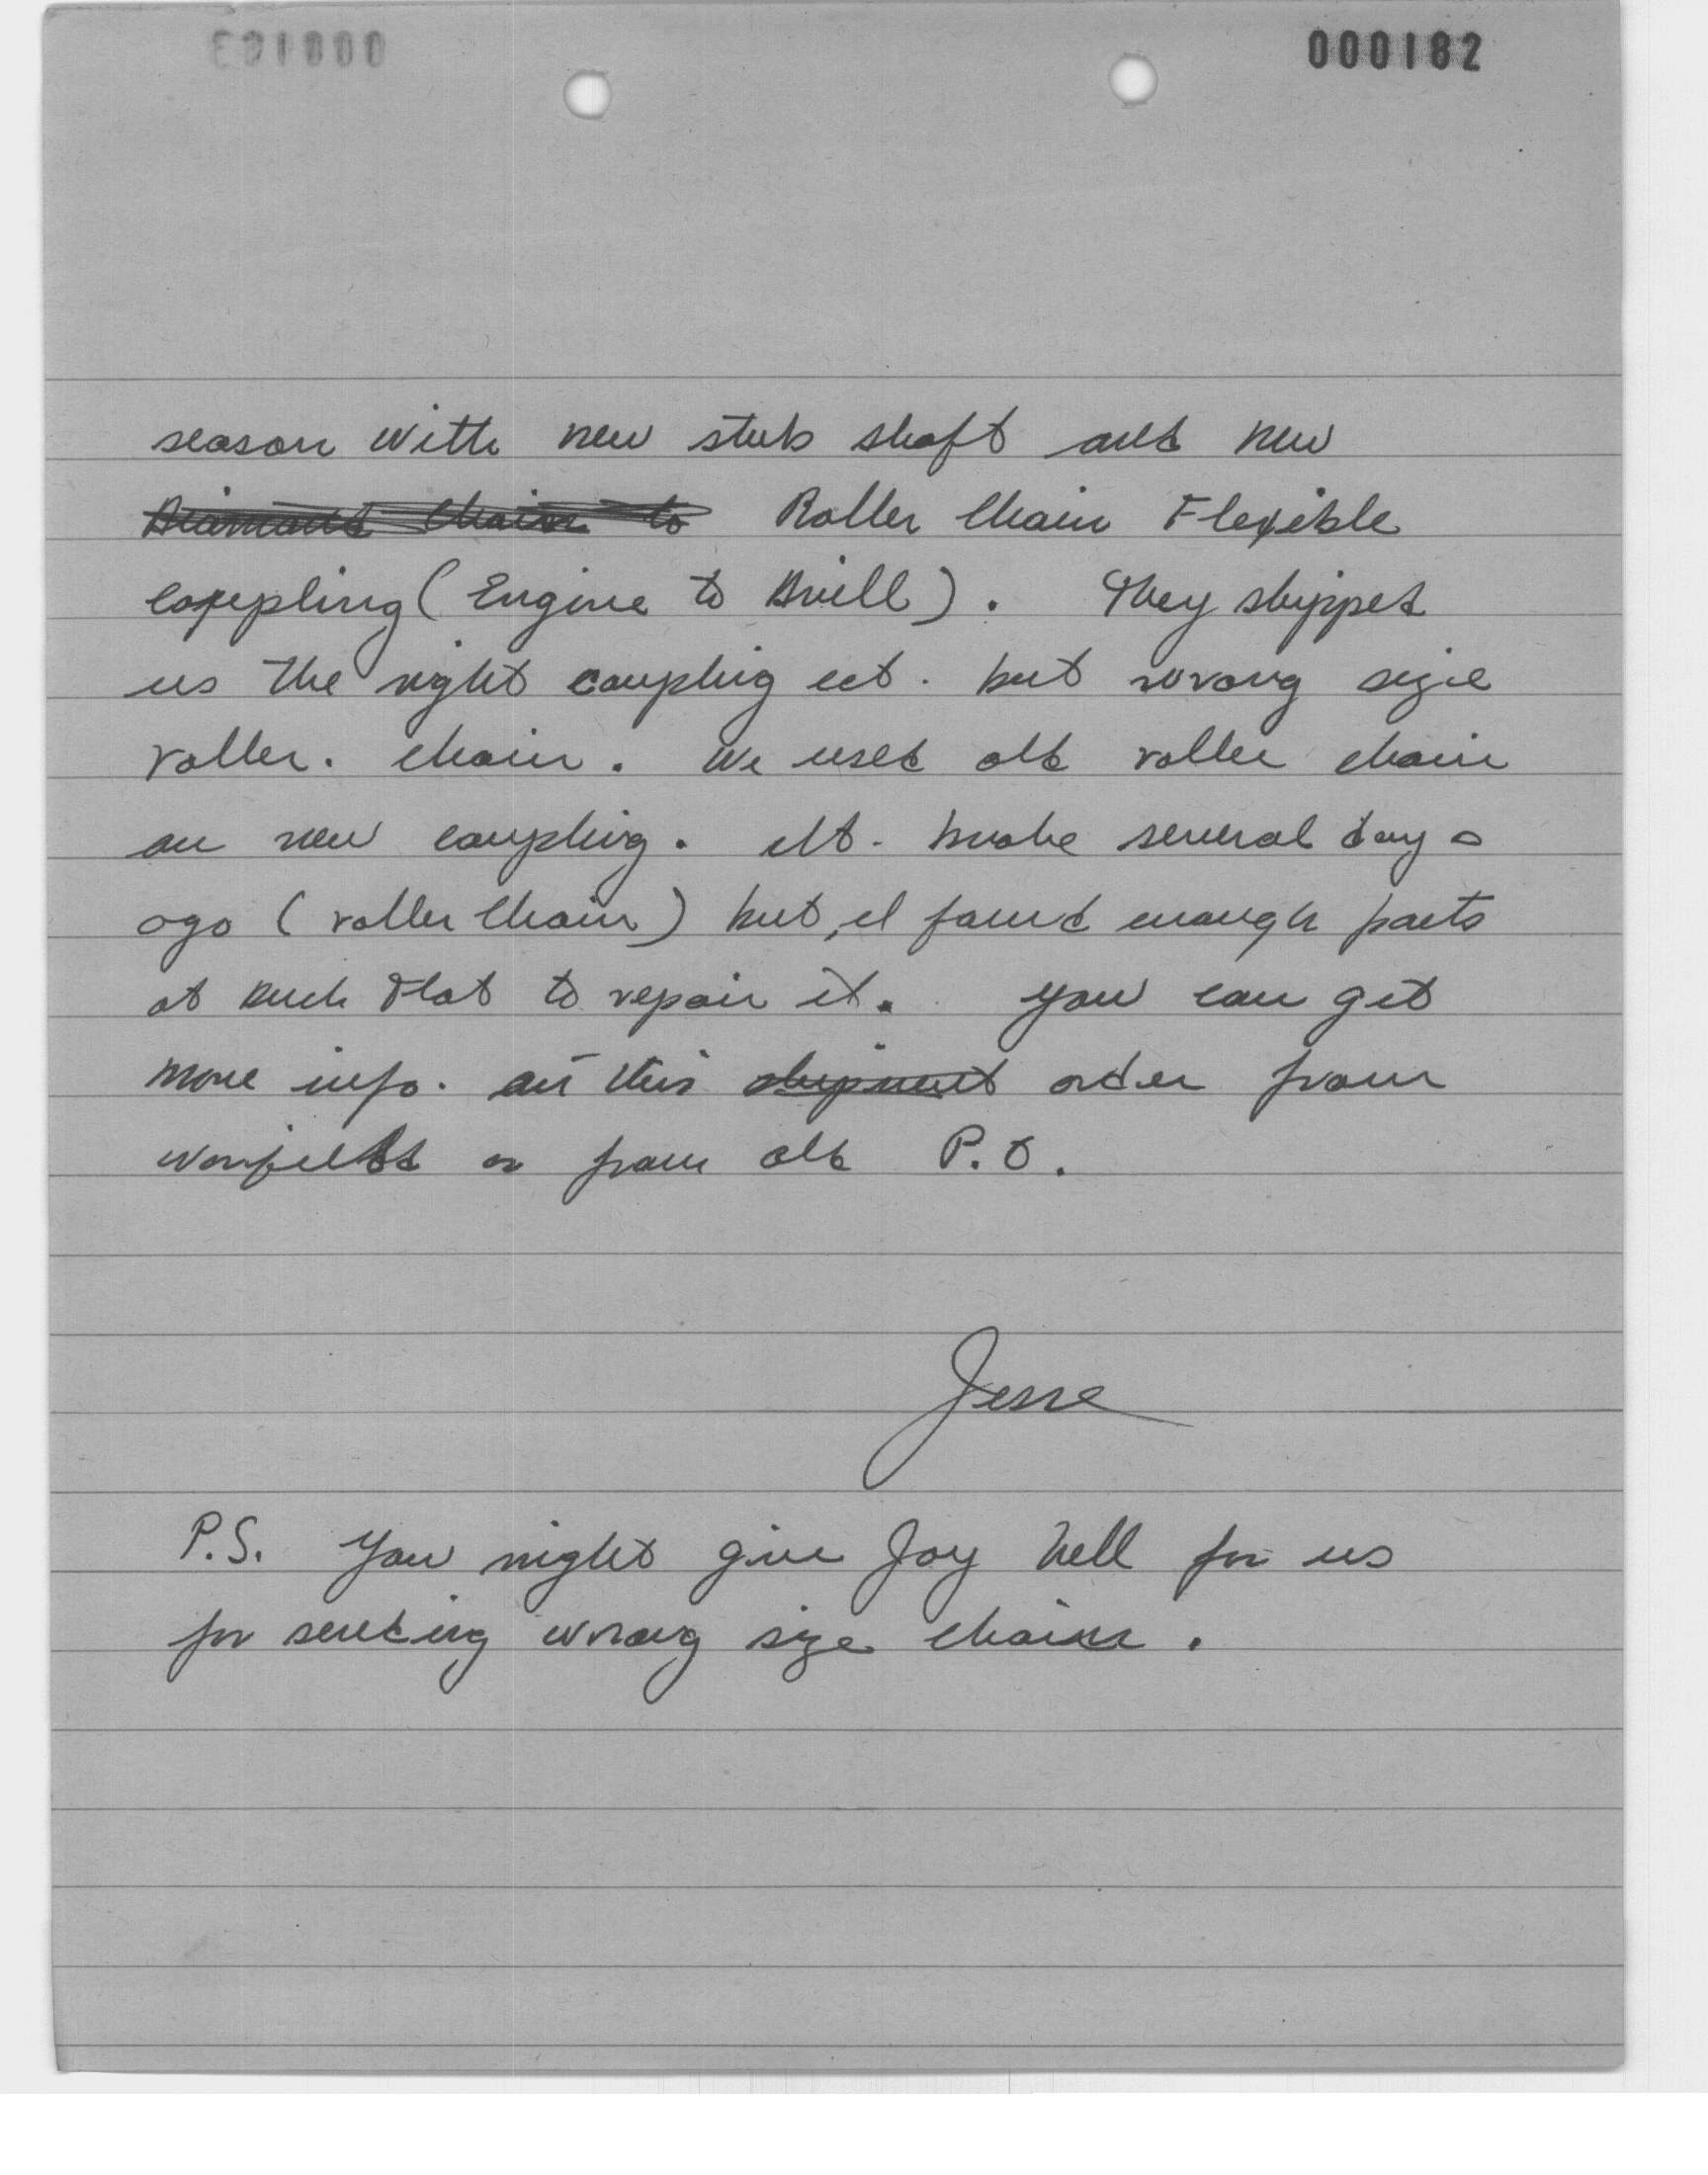 000182
season with new stub shaft and new
~~Diamond Chain to~~ Roller Chain Flexible
coupling (Engine to Drill). They shipped
us the right coupling ect. but wrong size
roller. chain. We used old roller chain
on new coupling. It. broke several days
ago (roller chain) but, I found enough parts
at Duck Flat to repair it. You can get
more info. on this ~~shipment~~ order from
or from old P.O.
Jesse
P.S. You might give Joy hell for us
for sending wrong size chain.